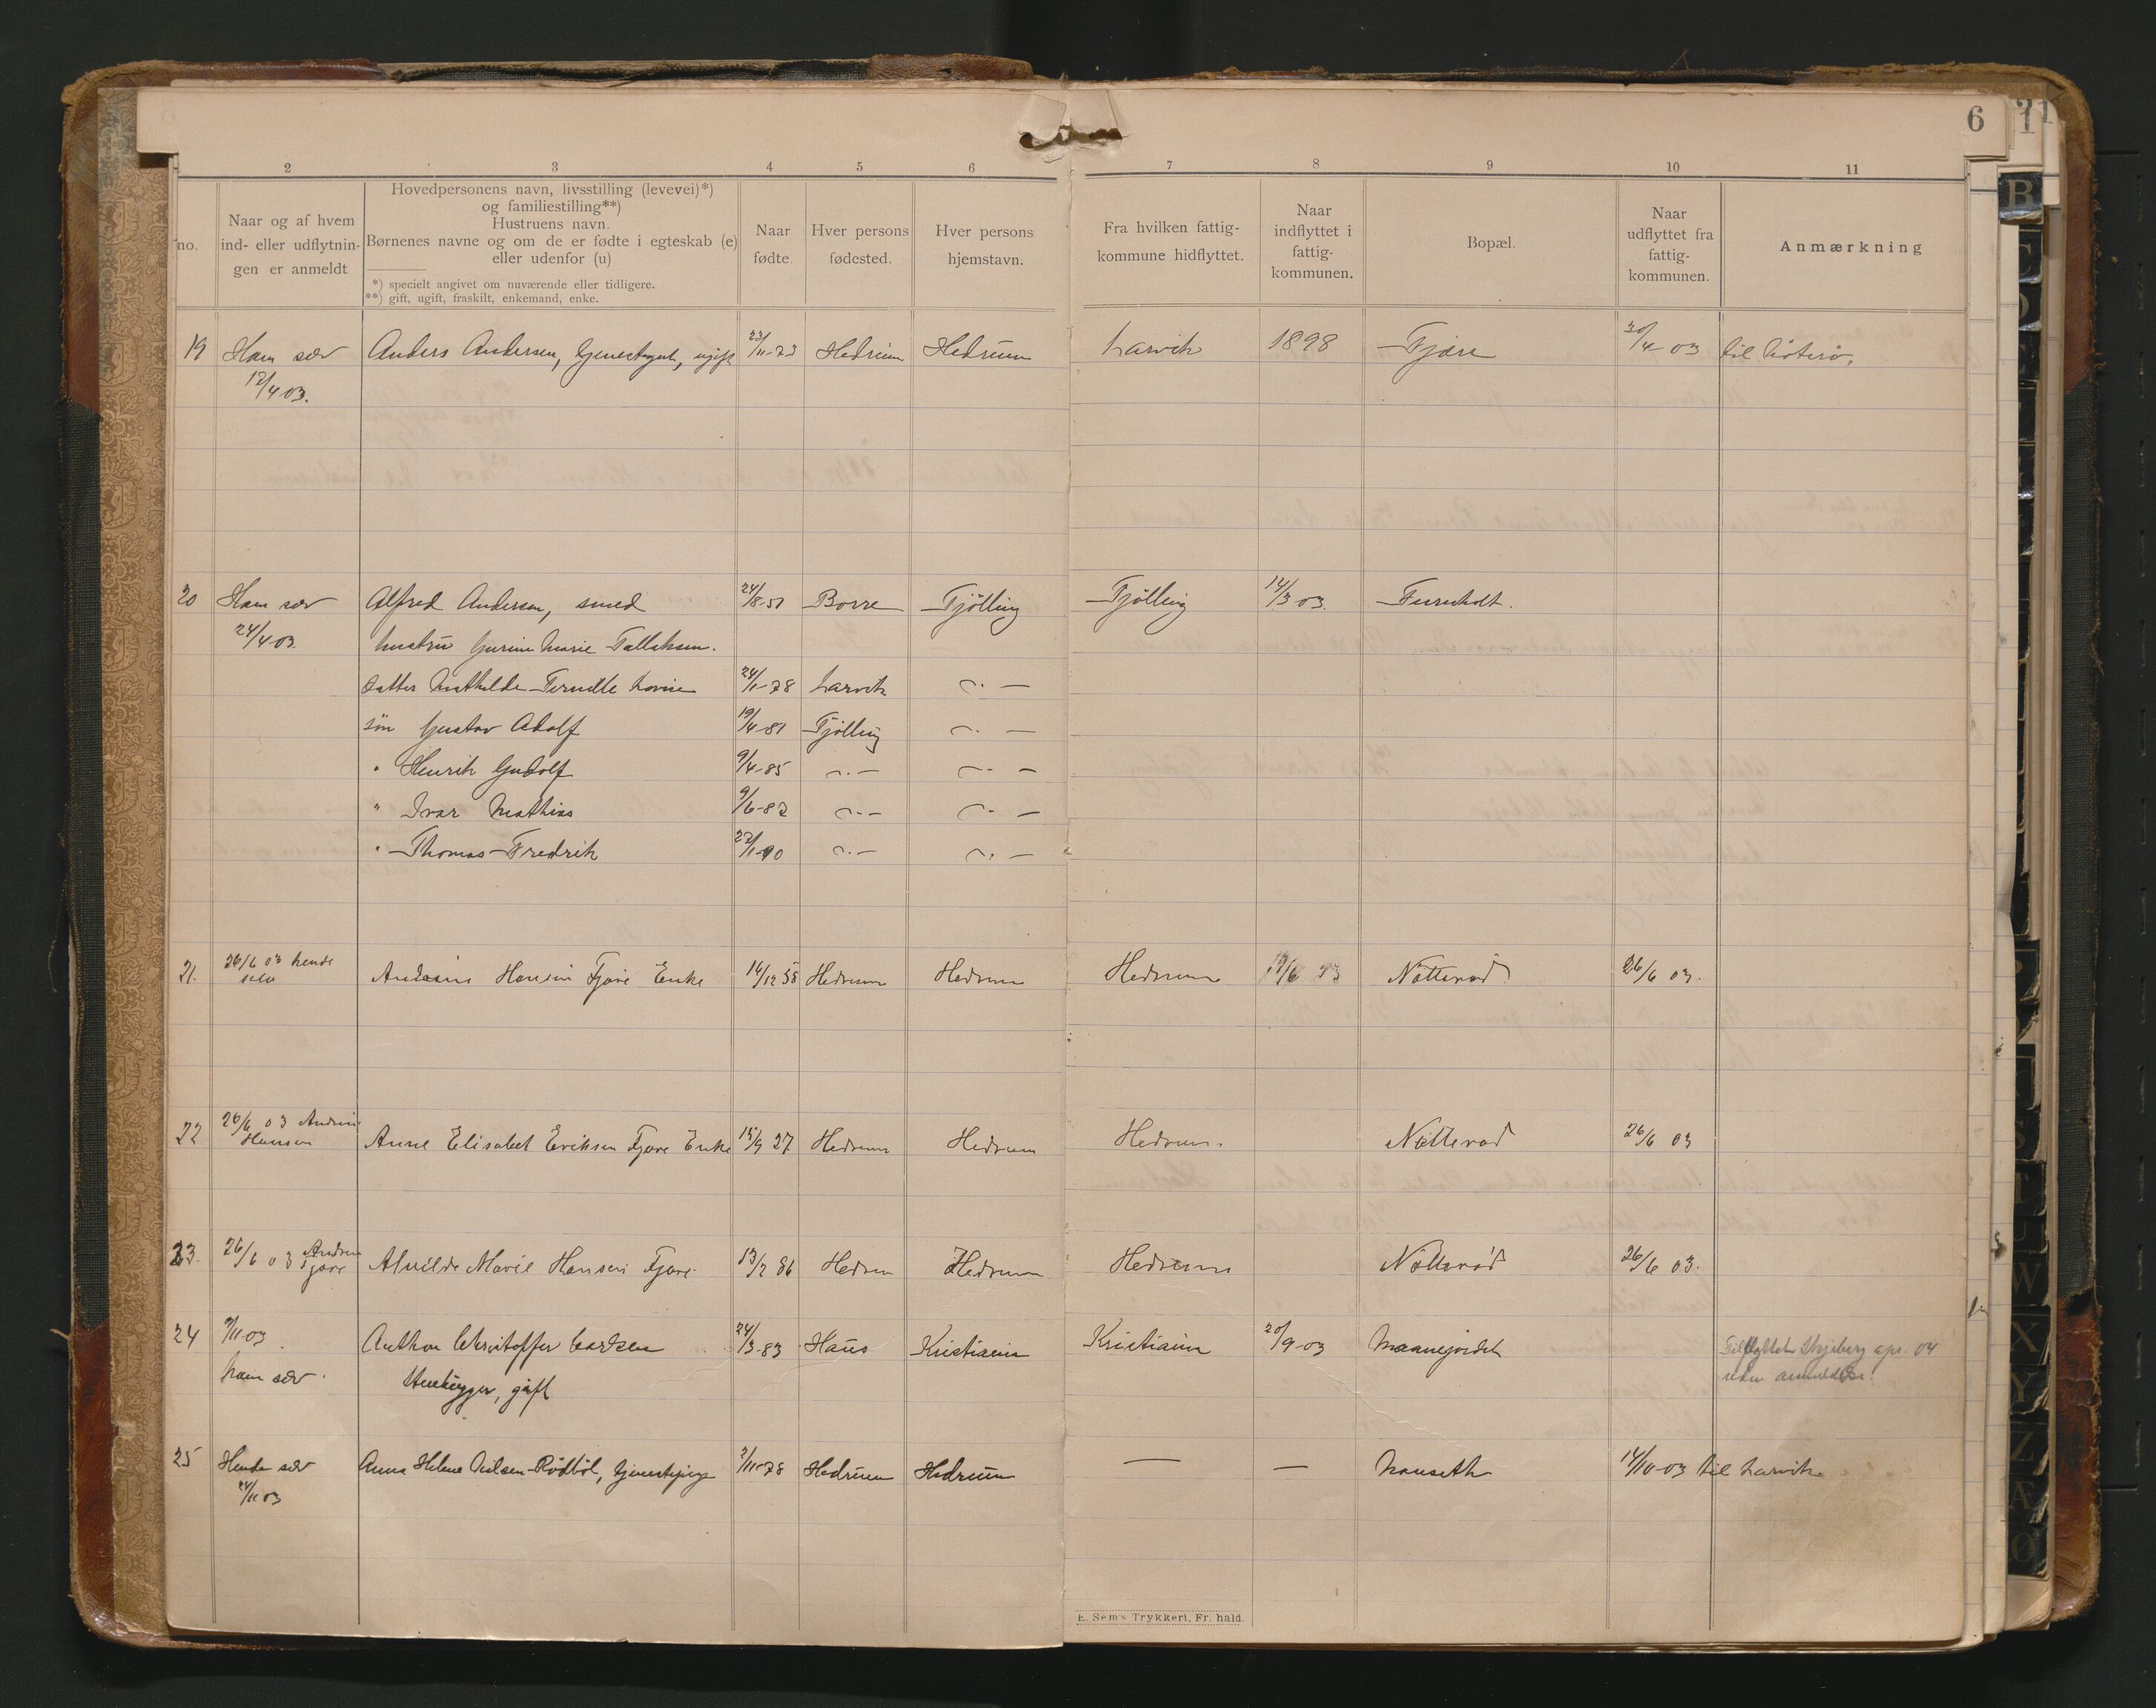 6
2 3 4 5 6 7 8 9 10 11
no.
Naar og af hvem
ind- eller udflytnin-
gen er anmeldt
Hovedpersonens navn, livsstilling (levevei)*)
og familiestilling**)
Hustruens navn.
Børnenes navne og om de er fødte i egteskab (e)
eller udenfor (u)
*) specielt angivet om nuværende eller tidligere.
**) gift, ugift, fraskilt, enkemand, enke.
Naar
fødte.
Hver persons
fødested.
Hver persons
hjemstavn.
Fra hvilken fattig-
kommune hidflyttet.
Naar
indflyttet i
fattig-
kommunen.
Bopæl.
Naar
udflyttet fra
fattig-
kommunen.
Anmærkning
19 Ham selv Anders Andersen, tjenestegut, ugift 23/11-73 Hedrum Hedrum Larvik 1898 Fjære 30/4-03 til Nøterø.
12/4 03.
20 Ham selv Alfred Andersen, smed 24/8-51 Borre Tjølling Tjølling 14/3 03. Furuholt.
24/4 03. hustru Gurine Marie Tallaksen.
datter Mathilde Pernille Lovise 24/1-78 Larvik " —
søn Gustav Adolf 19/4-81 Tjølling " —
" Henrik Gudolf 9/4-85 " — " —
" Ivar Mathias 9/6-87 " — " —
" Thomas Fredrik 27/1-90 " — " —
21. 26/6 03 hende Andrine Hansen Fjøre Enke 14/12 58 Hedrum Hedrum Hedrum Nötterød 26/6 03.
selv
22 26/6 03 Andrine
Hansen Anne Elisabet Eriksen Fjøre Enke 15/9 27. Hedrum Hedrum Hedrum. Nötterød 26/6 03
23. 26/6 03 Andrine
Fjøre Alvilde Marie Hansen Fjøre. 13/2 86 Hedrum Hedrum Hedrum Nötterød 26/6 03.
24 9/11-03 Anthon Christoffer Carlsen 24/3-83 Haus Kristiania Kristiania 20/9-03 Maanejordet Tilflyttet Skjeberg apr. 04
ham selv. Stenhugger, gift uden anmeldelse.
25 Hende selv Anna Helene Nilsen Rødbøl, tjenestepige 2/11-78 Hedrum Hedrum — — Nanseth 14/10-03 til Larvik
24/11 03
E. Sem's Trykkeri, Fr.hald.
B
X
Y
Z
Æ
Ø